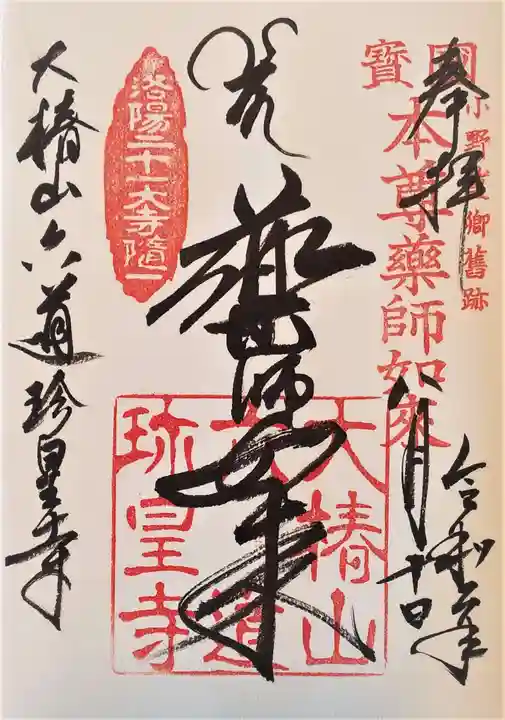 奉拝
小野篁卿舊跡
國寶
本尊藥師如來
八月十日
薬師如来
洛陽二十一大寺隨一
大椿山
六道
珎皇寺
大椿山六道珍皇寺